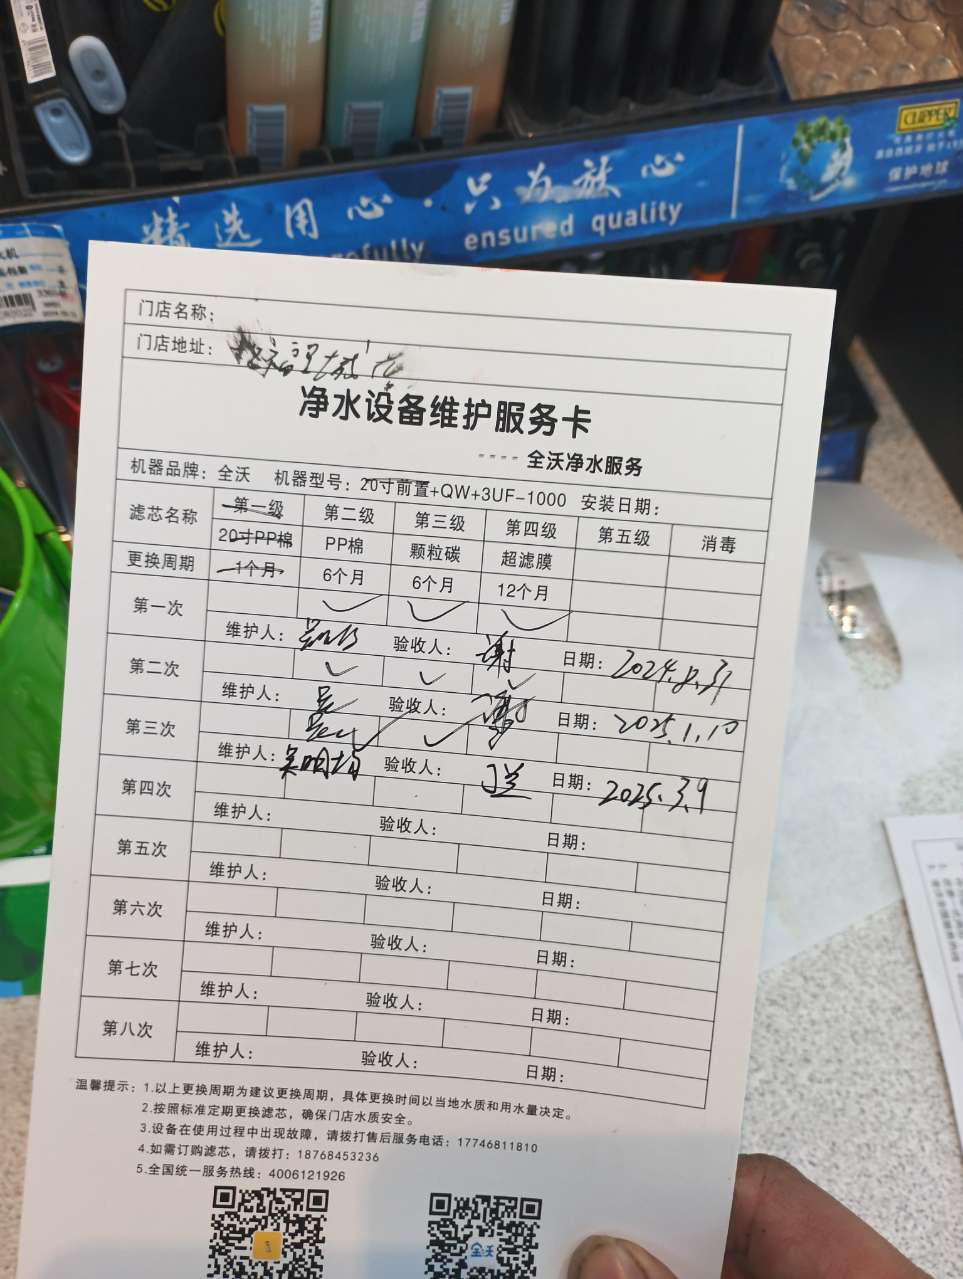 CLIPPER
保护地球
精选用心·只为放心
efully ensured quality
门店名称：
门店地址：
净水设备维护服务卡
---- 全沃净水服务
机器品牌：全沃 机器型号：20寸前置+QW+3UF-1000 安装日期：
滤芯名称 第一级 第二级 第三级 第四级 第五级 消毒
20寸PP棉 PP棉 颗粒碳 超滤膜
更换周期 1个月 6个月 6个月 12个月
第一次
维护人： 验收人：谢 日期：2024.8.31
第二次
维护人：吴 验收人： 日期：2025.1.10
第三次
维护人：吴明 验收人： 日期：2025.3.9
第四次
维护人： 验收人： 日期：
第五次
维护人： 验收人： 日期：
第六次
维护人： 验收人： 日期：
第七次
维护人： 验收人： 日期：
第八次
维护人： 验收人： 日期：
温馨提示：1.以上更换周期为建议更换周期，具体更换时间以当地水质和用水量决定。
2.按照标准定期更换滤芯，确保门店水质安全。
3.设备在使用过程中出现故障，请拨打售后服务电话：17746811810
4.如需订购滤芯，请拨打：18768453236
5.全国统一服务热线：4006121926
全沃